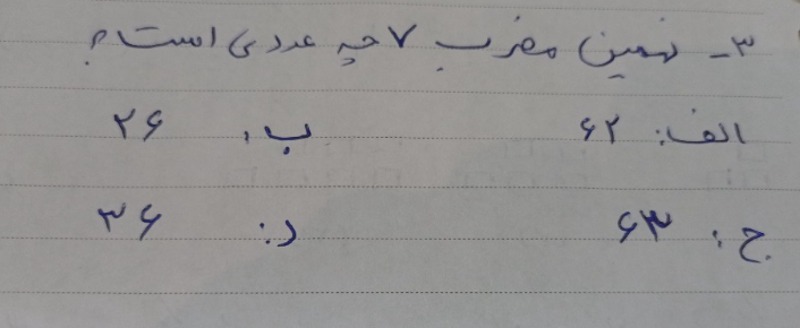 ۳- نهمین مضرب ۷ چه عددی است؟
الف: ۶۲ ب: ۲۶
ج: ۶۳ د: ۳۶